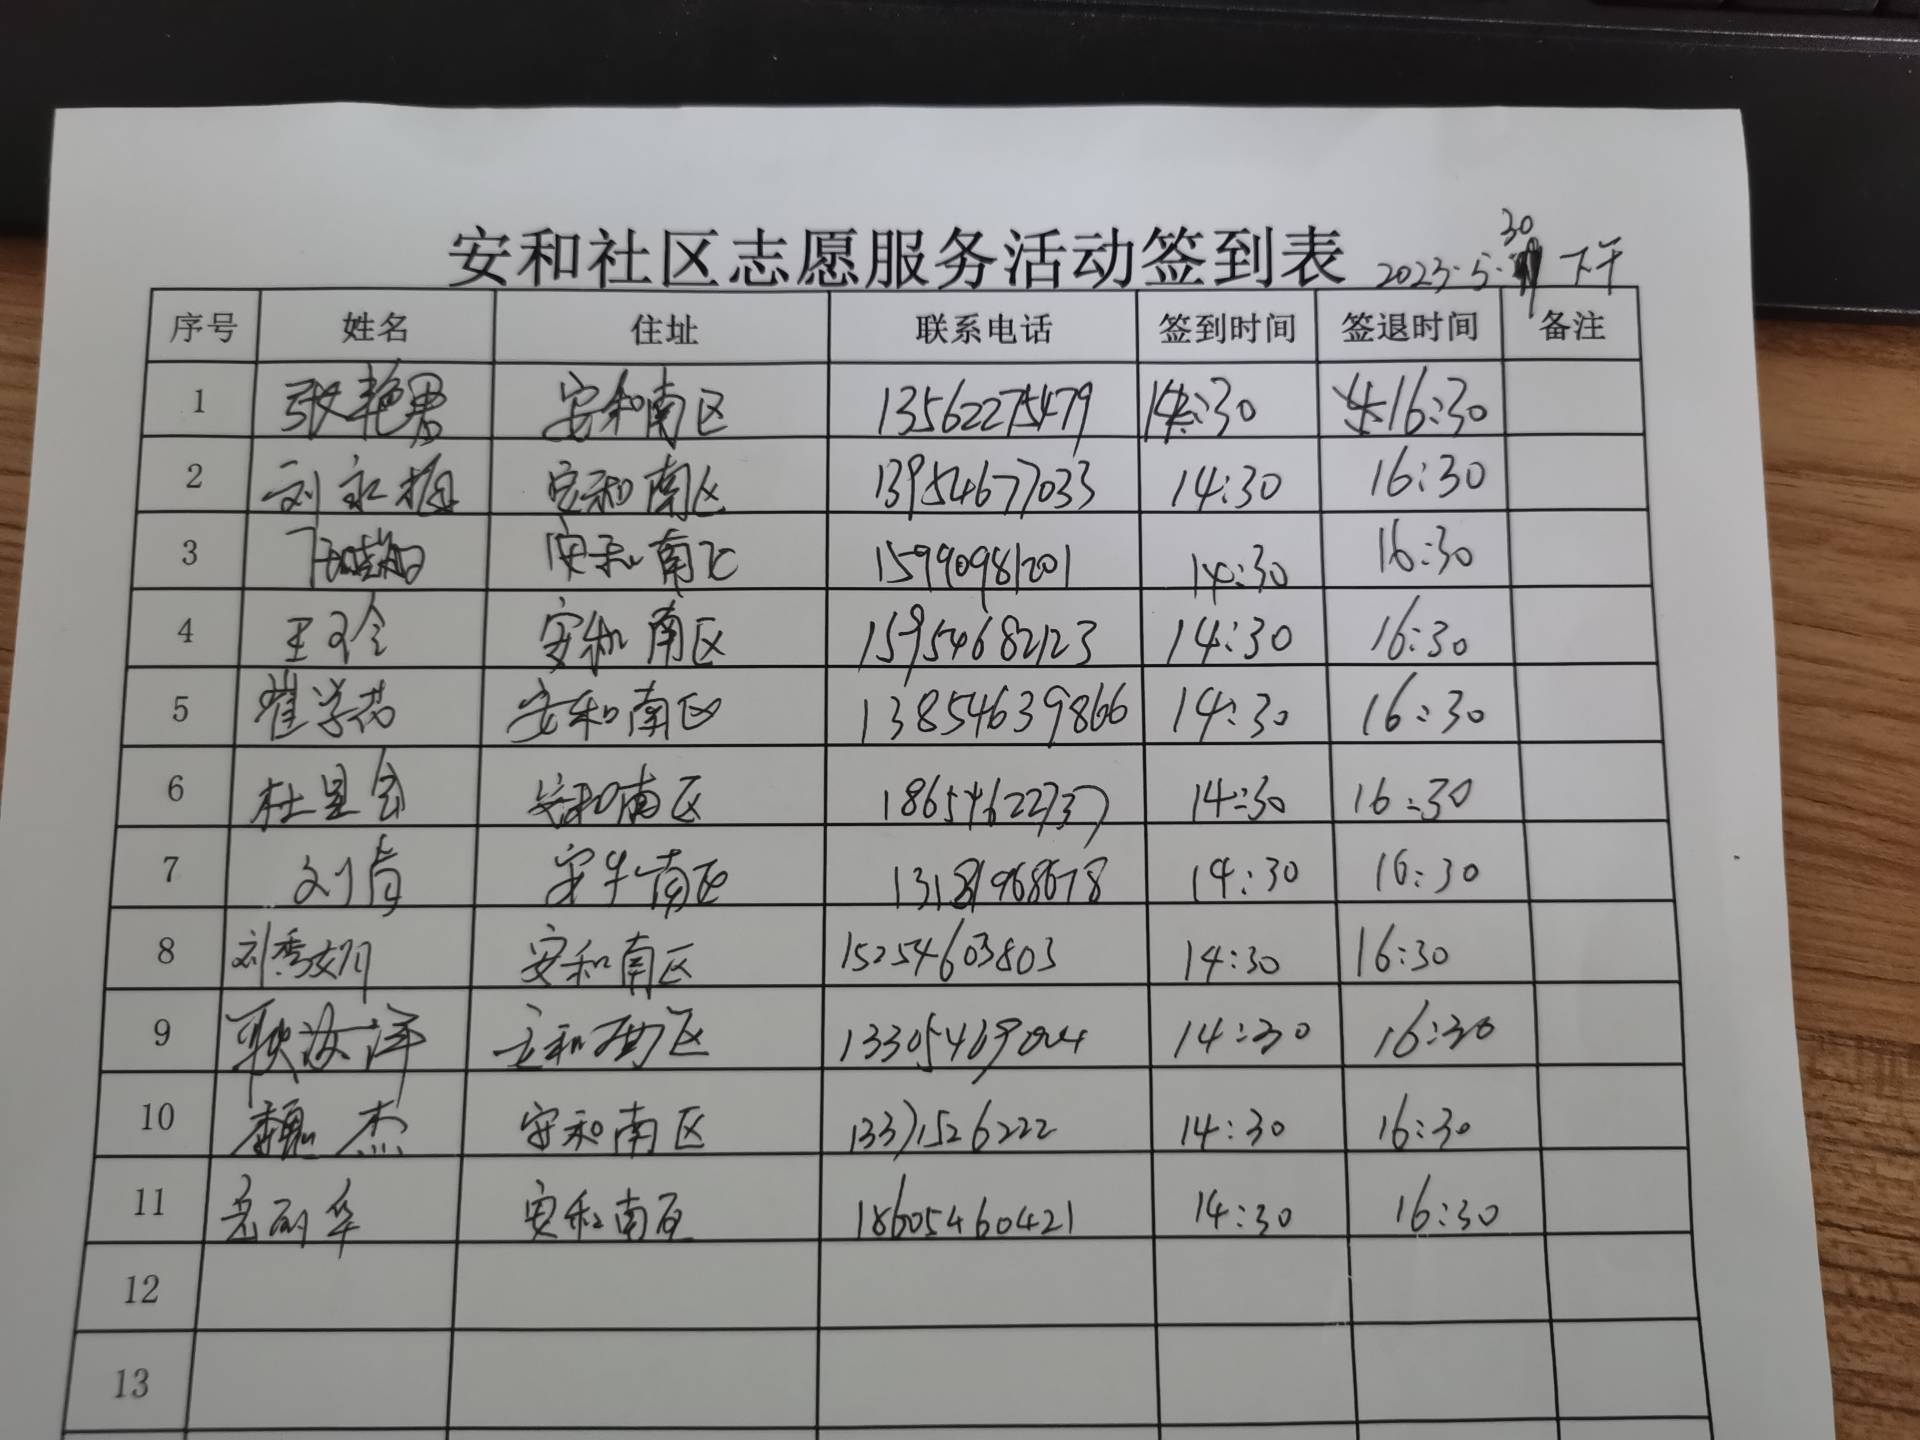 安和社区志愿服务活动签到表 2023.5.30 下午
序号 姓名 住址 联系电话 签到时间 签退时间 备注
1 张艳君 安和南区 13562275479 14:30 16:30
2 刘永梅 安和南区 13954677033 14:30 16:30
3 安和南区 15990981201 14:30 16:30
4 王玲 安和南区 15954682123 14:30 16:30
5 崔学芬 安和南区 13854639866 14:30 16:30
6 杜 安和南区 18654622737 14:30 16:30
7 刘 安和南区 13181968678 14:30 16:30
8 刘秀 安和南区 15254603803 14:30 16:30
9 耿海洋 安和西区 14:30 16:30
10 魏杰 安和南区 13371526222 14:30 16:30
11 丽华 安和南区 18605460421 14:30 16:30
12
13